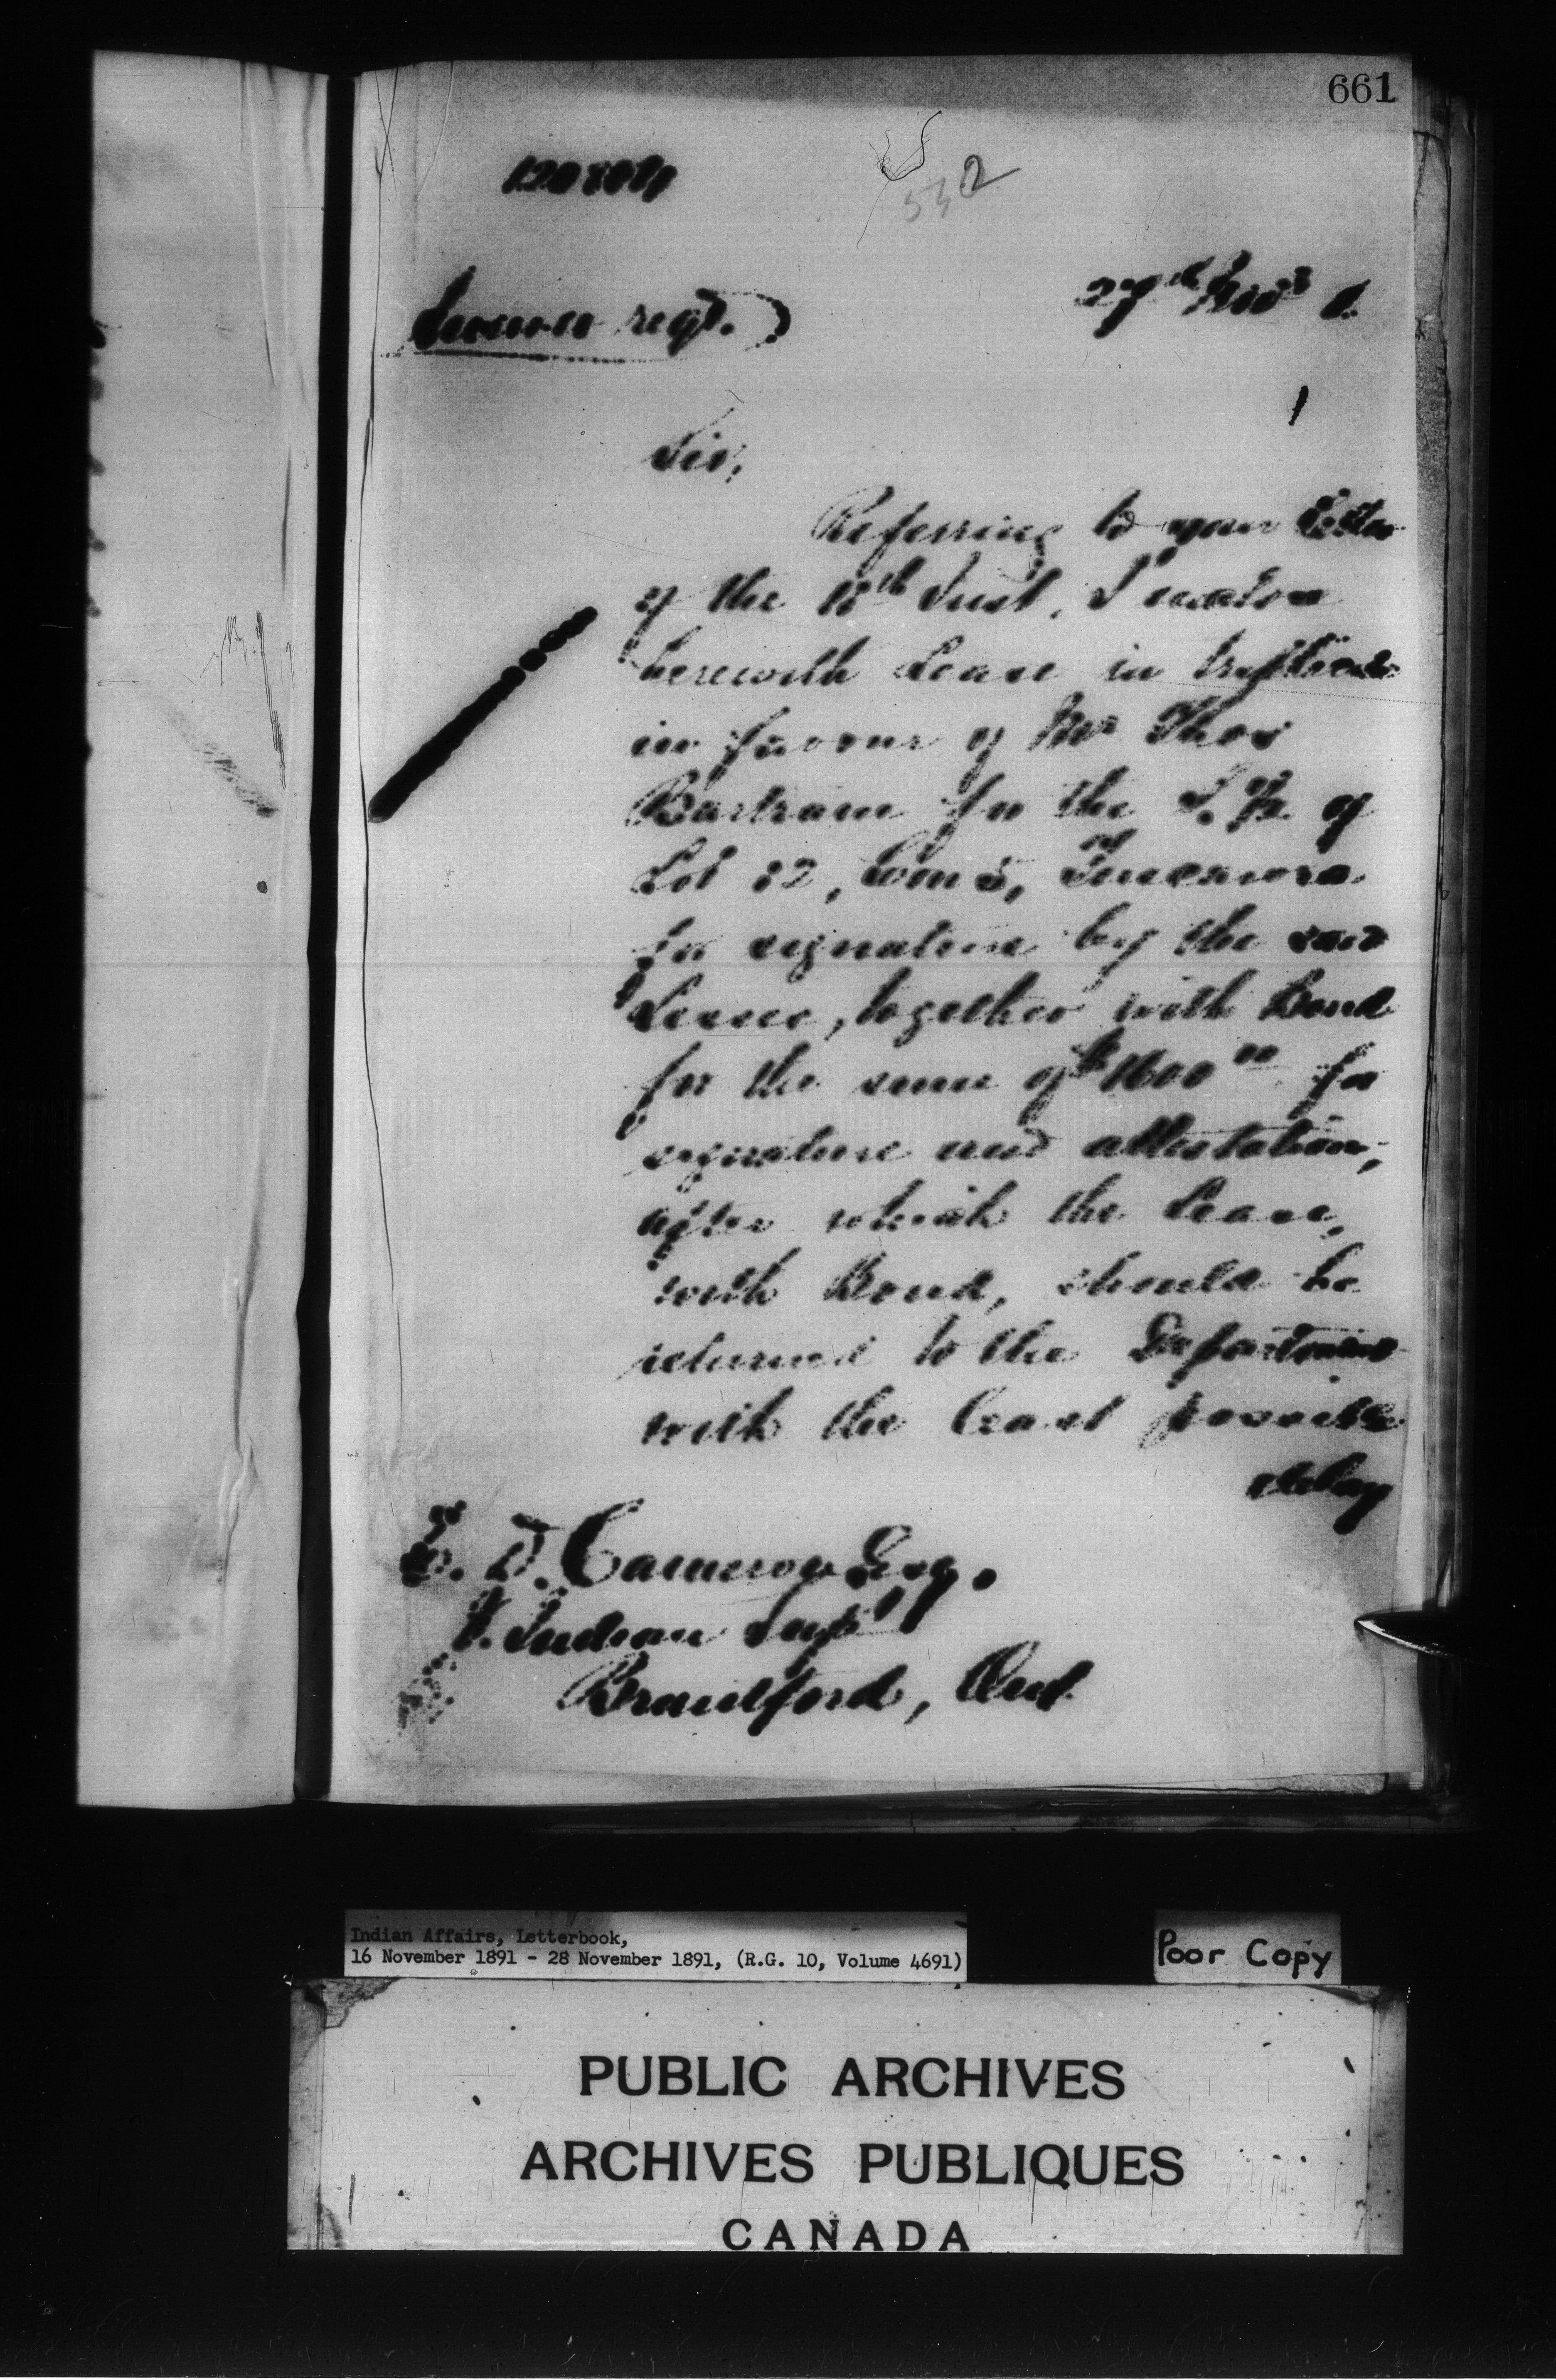 661
532
27th Nov 1.
regd. )
Sir,
Referring to your letter
of the 18th Inst, I enclose
herewith Lease in triplicate
in favour of Mr Thos
Bartram for the S. 1/2 of
Lot 32, Con 5, Tuscarora
for signature by the said
Lessee, together with Bond
for the sum of $1600.00 for
signature and attestation,
after which the Lease,
with Bond, should be
returned to the Department
with the least possible
delay
E. D. Cameron Esq.
Indian Supt
Brantford, Ont.
Indian Affairs, Letterbook,
16 November 1891 - 28 November 1891, (R.G. 10, Volume 4691)
Poor Copy
PUBLIC ARCHIVES
ARCHIVES PUBLIQUES
CANADA